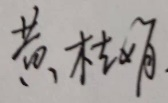 黄桂娟